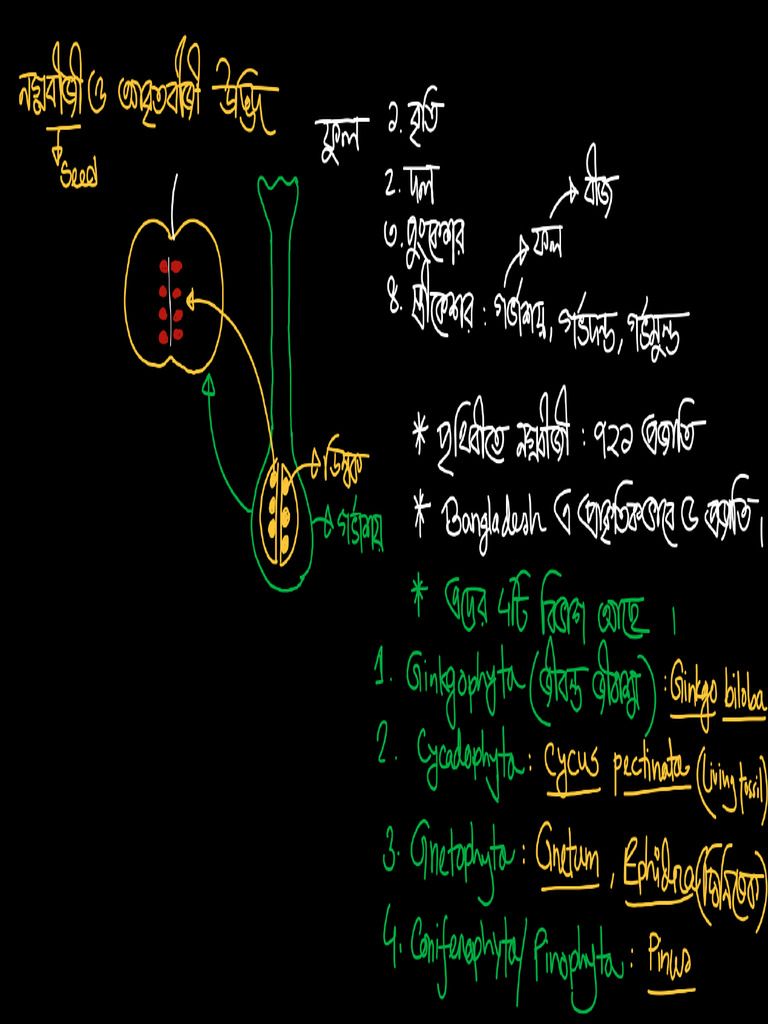 নগ্নবীজী ও আবৃতবীজী উদ্ভিদ
Seed
ফুল ১. বৃতি
২. দল
৩. পুংকেশর
ফল
বীজ
৪. স্ত্রীকেশর : গর্ভাশয়, গর্ভদন্ড, গর্ভমুন্ড
ডিম্বক
গর্ভাশয়
* পৃথিবীতে নগ্নবীজী : ৭২১ প্রজাতি
* Bangladesh এ প্রাকৃতিকভাবে ৫ প্রজাতি।
* এদের ৪টি বিভাগ আছে।
1. Ginkgophyta (জীবন্ত জীবাশ্ম) : Ginkgo biloba
2. Cycadophyta : Cycus pectinata (Living fossil)
3. Gnetophyta : Gnetum, Ephidra
4. Coniferophyta/Pinophyta : Pinus